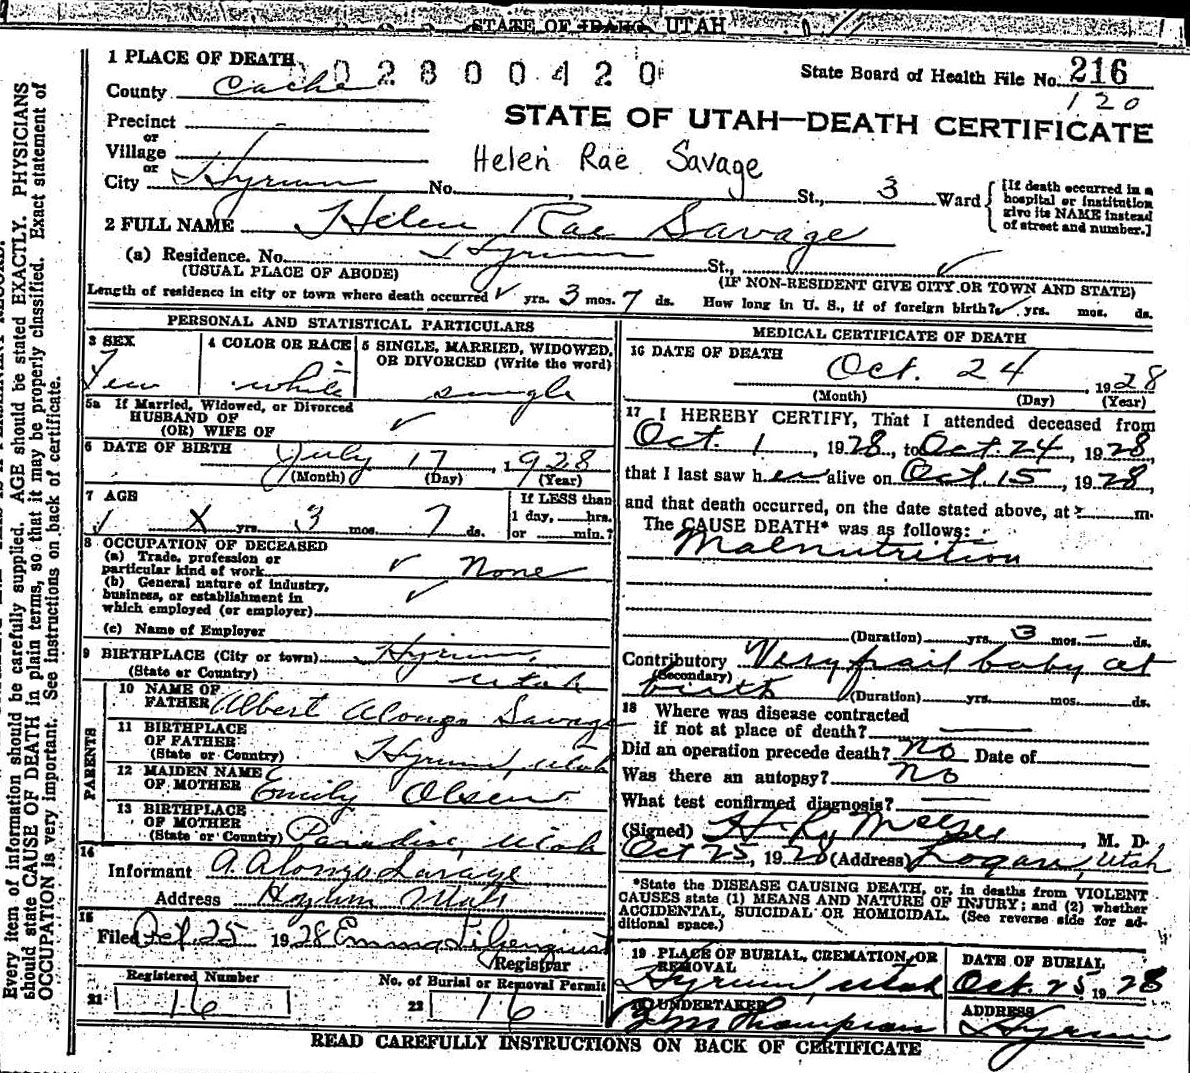 STATE OF IDAHO, UTAH
1 PLACE OF DEATH
02800420
State Board of Health File No. 216
120
County Cache
STATE OF UTAH—DEATH CERTIFICATE
Precinct -
or
Village
Helen Rae Savage
or
City Hyrum No. St., 3 Ward
[If death occurred in a hospital or institution give its NAME instead of street and number.]
2 FULL NAME Helen Rae Savage
(a) Residence. No. Hyrum St., ✓
(USUAL PLACE OF ABODE) (IF NON-RESIDENT GIVE CITY OR TOWN AND STATE)
Length of residence in city or town where death occurred ✓ yrs. 3 mos. 7 ds. How long in U. S., if of foreign birth? ✓ yrs. mos. ds.
PERSONAL AND STATISTICAL PARTICULARS
3 SEX Fem
4 COLOR OR RACE white
5 SINGLE, MARRIED, WIDOWED, OR DIVORCED (Write the word) single
5a If Married, Widowed, or Divorced
HUSBAND OF
(OR) WIFE OF ✓
6 DATE OF BIRTH July 17, 1928
(Month) (Day) (Year)
7 AGE X yrs. 3 mos. 7 ds.
If LESS than
1 day, hrs.
or min.?
8 OCCUPATION OF DECEASED
(a) Trade, profession or
particular kind of work ✓ None
(b) General nature of industry,
business, or establishment in ✓
which employed (or employer)
(c) Name of Employer
9 BIRTHPLACE (City or town) Hyrum,
(State or Country) Utah
PARENTS
10 NAME OF
FATHER Albert Alonzo Savage
11 BIRTHPLACE
OF FATHER
(State or Country) Hyrum, Utah
12 MAIDEN NAME
OF MOTHER Emily Olsen
13 BIRTHPLACE
OF MOTHER
(State or Country) Paradise, Utah
14
Informant A. Alonzo Savage
Address Hyrum Utah
15
Filed Oct. 25 1928 Emma
Registrar
Registered Number
21 16
No. of Burial or Removal Permit
22 16
MEDICAL CERTIFICATE OF DEATH
16 DATE OF DEATH
Oct. 24 1928
(Month) (Day) (Year)
17 I HEREBY CERTIFY, That I attended deceased from
Oct. 1, 1928, to Oct. 24, 1928,
that I last saw her alive on Oct. 15, 1928,
and that death occurred, on the date stated above, at m.
The CAUSE DEATH* was as follows:
Malnutrition
(Duration) yrs. 3 mos. - ds.
Contributory Very frail baby at
(Secondary)
birth (Duration) yrs. mos. ds.
18 Where was disease contracted
if not at place of death?
Did an operation precede death? No Date of
Was there an autopsy? no
What test confirmed diagnosis?
(Signed) M. D.
Oct 25, 1928 (Address) Logan, Utah
*State the DISEASE CAUSING DEATH, or, in deaths from VIOLENT
CAUSES state (1) MEANS AND NATURE OF INJURY; and (2) whether
ACCIDENTAL, SUICIDAL OR HOMICIDAL. (See reverse side for ad-
ditional space.)
19 PLACE OF BURIAL, CREMATION, OR
REMOVAL
Hyrum, Utah
DATE OF BURIAL
Oct. 25 1928
20 UNDERTAKER
Thompson
ADDRESS
Hyrum
READ CAREFULLY INSTRUCTIONS ON BACK OF CERTIFICATE
Every item of information should be carefully supplied. AGE should be stated EXACTLY. PHYSICIANS
should state CAUSE OF DEATH in plain terms, so that it may be properly classified. Exact statement of
OCCUPATION is very important. See instructions on back of certificate.